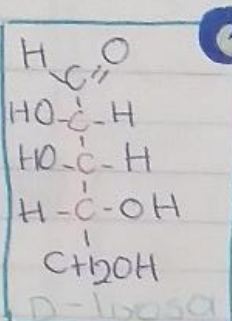 H O
C
HO-C-H
HO-C-H
H-C-OH
CH2OH
D-lixosa